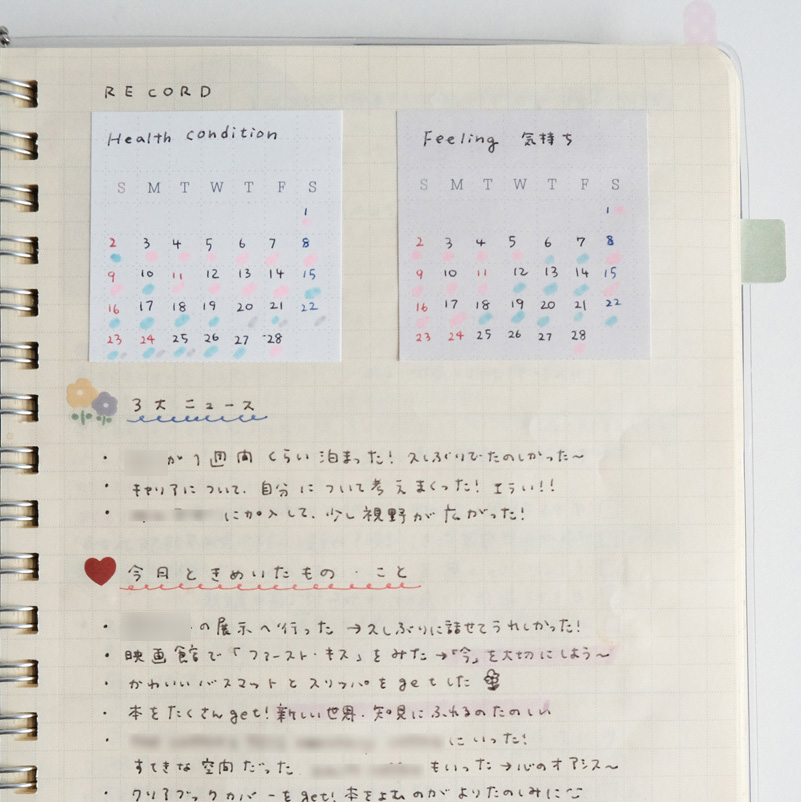 RECORD
Health condition
S M T W T F S
1
2 3 4 5 6 7 8
9 10 11 12 13 14 15
16 17 18 19 20 21 22
23 24 25 26 27 28
Feeling 気持ち
S M T W T F S
1
2 3 4 5 6 7 8
9 10 11 12 13 14 15
16 17 18 19 20 21 22
23 24 25 26 27 28
3大ニュース
・ が1週間くらい泊まった! 久しぶりでたのしかった〜
・キャリアについて、自分について考えまくった! エらい!!
・ に加入して、少し視野が広がった!
今月ときめいたもの・こと
・ の展示へ行った →久しぶりに話せてうれしかった!
・映画館で「ファースト・キス」をみた→「今」を大切にしよう〜
・かわいいバスマットとスリッパをgetした
・本をたくさんget! 新しい世界・知見にふれるのたのしい
・ にいった!
すてきな空間だった もいった→心のオアシス〜
・クリアブックカバーをget! 本をよむのがよりたのしみに